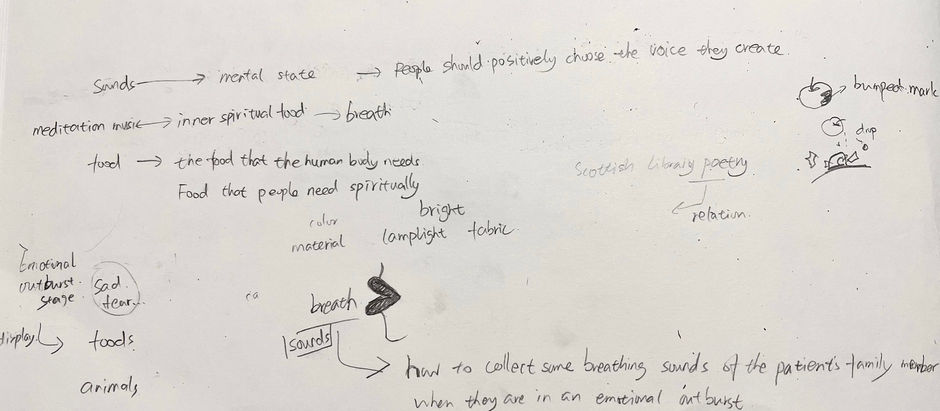 sounds → mental state → people should positively choose the voice they create.
meditation music → inner spiritual food → breath
food → the food that the human body needs
Food that people need spiritually
bumped mark
drop
Scottish Library poetry
relation.
color
material
bright
lamplight fabric
Emotional
outburst
stage
sad
fear
display → foods
animals
ca
breath
sounds
how to collect some breathing sounds of the patient's family member
when they are in an emotional outburst